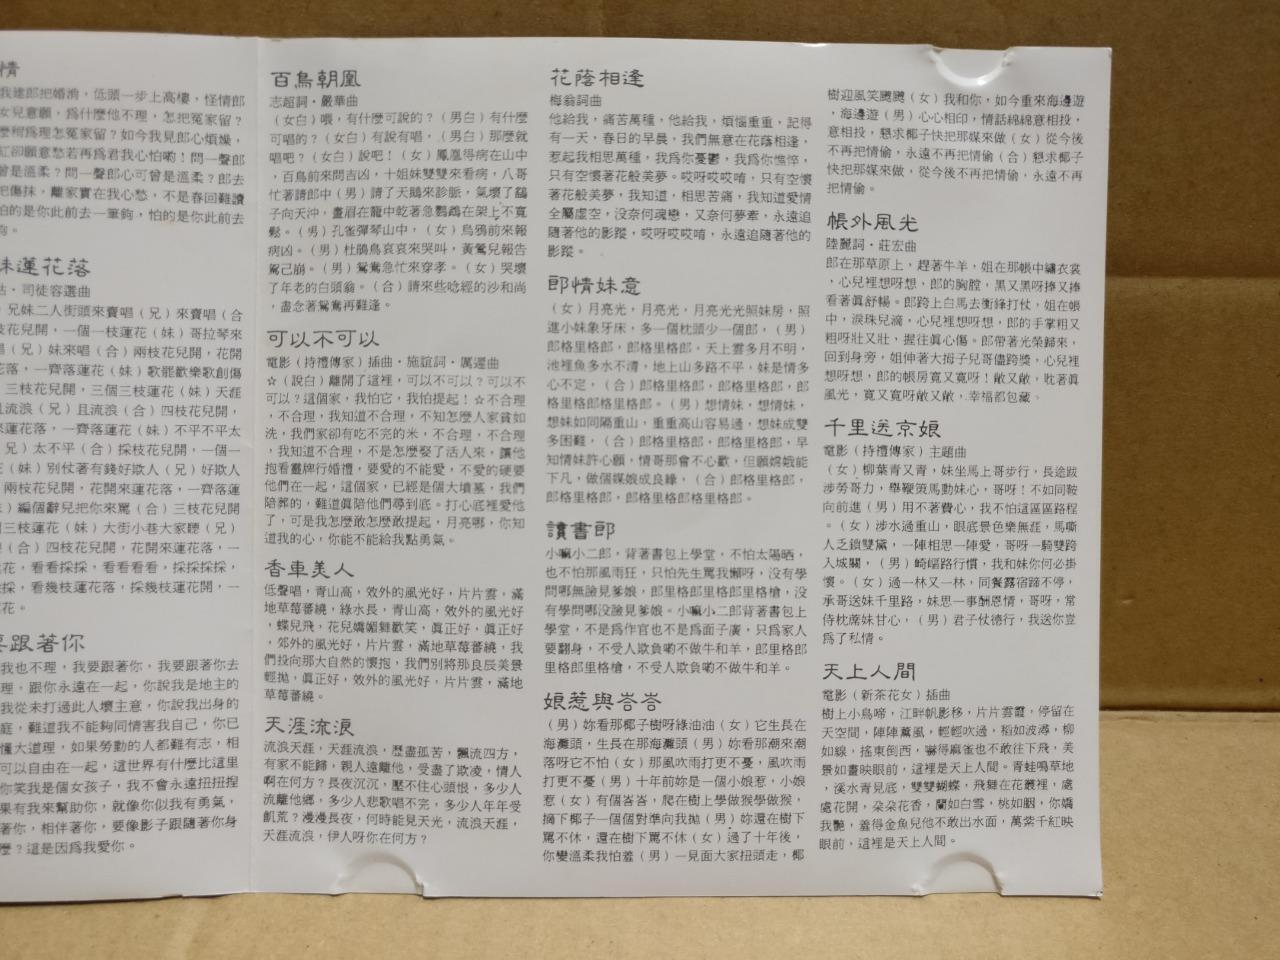 情
我逢郎把婚消,低頭一步上高樓,怪情郎
女兒意願,爲什麼他不理,怎把冤家留?
麼柯爲理怎冤家留?如今我見郎心煩燥,
紅卻願意愁若再爲君我心怕喲!問一聲郎
曾是溫柔?問一聲郎心可曾是溫柔?郎去
把傷抹,離家實在我心愁,不是春回難讀
怕的是你此前去一筆鉤,怕的是你此前去
鉤。
妹蓮花落
司徒容選曲
)兄妹二人街頭來賣唱(兄)來賣唱(合
枝花兒開,一個一枝蓮花(妹)哥拉琴來
唱(兄)妹來唱(合)兩枝花兒開,花開
花落,一齊落蓮花(妹)歌罷歡樂歌創傷
)三枝花兒開,三個三枝蓮花(妹)天涯
且流浪(兄)且流浪(合)四枝花兒開,
來蓮花落,一齊落蓮花(妹)不平不平太
兄)太不平(合)採枝花兒開,一個一
花(妹)別仗著有錢好欺人(兄)好欺人
)兩枝花兒開,花開來蓮花落,一齊落蓮
)編個辭兒把你來罵(合)三枝花兒開
個三枝蓮花(妹)大街小巷大家聽(兄)
(合)四枝花兒開,花開來蓮花落,一
花,看看採採,看看看看,採採採採,
採,看幾枝蓮花落,採幾枝蓮花開,一
花。
要跟著你
我也不理,我要跟著你,我要跟著你去
理,跟你永遠在一起,你說我是地主的
我從未打過此人壞主意,你說我出身的
庭,難道我不能夠同情害我自己,你已
懂大道理,如果勞動的人都難有志,相
可以自由在一起,這世界有什麼比這里
你笑我是個女孩子,我不會永遠扭扭捏
果有我來幫助你,就像你似我有勇氣,
著你,相伴著你,要像影子跟隨著你身
麼?這是因爲我愛你。
百鳥朝凰
志超詞・嚴華曲
(女白)喂,有什麼可說的?(男白)有什麼
可唱的?(女白)有說有唱,(男白)那麼就
唱吧?(女白)說吧!(女)鳳凰得病在山中
,百鳥前來問吉凶,十姐妹雙雙來看病,八哥
忙著請郎中(男)請了天鵝來診脈,氣壞了鶴
子向天沖,畫眉在籠中乾著急鸚鵡在架上不寬
鬆。(男)孔雀彈琴山中,(女)烏鴉前來報
病凶。(男)杜鵑鳥哀哀來哭叫,黃鶯兒報告
駕己崩。(男)鴛鴦急忙來穿孝。(女)哭壞
了年老的白頭翁。(合)請來些唸經的沙和尚
,盡念著鴛鴦再難逢。
可以不可以
電影(持禮傳家)插曲・施誼詞・厲遲曲
☆(說白)離開了這裡,可以不可以?可以不
可以?這個家,我怕它,我怕提起!☆不合理
,不合理,我知道不合理,不知怎麼人家貧如
洗,我們家卻有吃不完的米,不合理,不合理
,我知道不合理,不是怎麼娶了活人來,讓他
抱看靈牌行婚禮,要愛的不能愛,不愛的硬要
他們在一起,這個家,已經是個大墳墓,我們
陪葬的,難道眞陪他們尋到底。打心底裡愛他
了,可是我怎麼敢怎麼敢提起,月亮哪,你知
道我的心,你能不能給我點勇氣。
香車美人
低聲唱,青山高,效外的風光好,片片雲,滿
地草莓蕃繞,綠水長,青山高,效外的風光好
,蝶兒飛,花兒嬌媚舞歡笑,眞正好,眞正好
,郊外的風光好,片片雲,滿地草莓蕃繞,我
們投向那大自然的懷抱,我們別將那良辰美景
輕拋,眞正好,效外的風光好,片片雲,滿地
草莓蕃繞。
天涯流浪
流浪天涯,天涯流浪,歷盡孤苦,飄流四方,
有家不能歸,親人遠離他,受盡了欺凌,情人
啊在何方?長夜沉沉,壓不住心頭恨,多少人
流離他鄉,多少人悲歌唱不完,多少人年年受
飢荒?漫漫長夜,何時能見天光,流浪天涯,
天涯流浪,伊人呀你在何方?
花蔭相逢
梅翁詞曲
他給我,痛苦萬種,他給我,煩惱重重,記得
有一天,春日的早晨,我們無意在花蔭相逢,
惹起我相思萬種,我爲你憂鬱,我爲你憔悴,
只有空懷著花般美夢。哎呀哎哎唷,只有空懷
著花般美夢,我知道,相思苦痛,我知道愛情
全屬虛空,沒奈何魂戀,又奈何夢牽,永遠追
隨著他的影蹤,哎呀哎哎唷,永遠追隨著他的
影蹤。
郎情妹意
(女)月亮光,月亮光,月亮光光照妹房,照
進小妹象牙床,多一個枕頭少一個郎,(男)
郎格里格郎,郎格里格郎,天上雲多月不明,
池裡魚多水不清,地上山多路不平,妹是情多
心不定,(合)郎格里格郎,郎格里格郎,郎
格里格郎格里格郎。(男)想情妹,想情妹,
想妹如同隔重山,重重高山容易過,想妹成雙
多困難,(合)郎格里格郎,郎格里格郎,早
知情妹許心願,情哥那會不心歡,但願嫦娥能
下凡,做個媒娘成良緣,(合)郎格里格郎,
郎格里格郎,郎格里格郎格里格郎。
讀書郎
小嘛小二郎,背著書包上學堂,不怕太陽晒,
也不怕那風雨狂,只怕先生罵我懶呀,沒有學
問哪無論見爹娘,郎里格郎里格郎里格槍,沒
有學問哪沒論見爹娘。小嘛小二郎背著書包上
學堂,不是爲作官也不是爲面子廣,只爲家人
要翻身,不受人欺負喲不做牛和羊,郎里格郎
里格郎里格槍,不受人欺負喲不做牛和羊。
娘惹與峇峇
(男)妳看那椰子樹呀綠油油(女)它生長在
海灘頭,生長在那海灘頭(男)妳看那潮來潮
落呀它不怕(女)那風吹雨打更不憂,風吹雨
打更不憂(男)十年前妳是一個小娘惹,小娘
惹(女)有個峇峇,爬在樹上學做猴學做猴,
摘下椰子一個個對準向我拋(男)妳還在樹下
罵不休,還在樹下罵不休(女)過了十年後,
你變溫柔我怕羞(男)一見面大家扭頭走,椰
樹迎風笑颼颼(女)我和你,如今重來海邊遊
,海邊遊(男)心心相印,情話綿綿意相投,
意相投,懇求椰子快把那媒來做(女)從今後
不再把情偷,永遠不再把情偷(合)懇求椰子
快把那媒來做,從今後不再把情偷,永遠不再
把情偷。
帳外風光
陸麗詞・莊宏曲
郎在那草原上,趕著牛羊,姐在那帳中繡衣裳
,心兒裡想呀想,郎的胸膛,黑又黑呀捧又捧
看著眞舒暢。郎跨上白馬去衝鋒打仗,姐在帳
中,淚珠兒滴,心兒裡想呀想,郎的手掌粗又
粗呀壯又壯,握往眞心傷。郎帶著光榮歸來,
回到身旁,姐伸著大拇子兒哥儘跨獎,心兒裡
想呀想,郎的帳房寬又寬呀!敞又敞,耽著眞
風光,寬又寬呀敞又敞,幸福都包藏。
千里送京娘
電影(持禮傳家)主題曲
(女)柳葉青又青,妹坐馬上哥步行,長途跋
涉勞哥力,舉鞭策馬動妹心,哥呀!不如同鞍
向前進(男)用不著費心,我不怕這區區路程
。(女)涉水過重山,眼底景色樂無涯,馬嘶
人乏鎖雙黛,一陣相思一陣愛,哥呀一騎雙跨
入城關,(男)崎嶇路行慣,我和妹你何必掛
懷。(女)過一林又一林,同餐露宿蹄不停,
承哥送妹千里路,妹思一事酬恩情,哥呀,常
侍枕蓆妹甘心,(男)君子仗德行,我送你豈
爲了私情。
天上人間
電影(新茶花女)插曲
樹上小鳥啼,江畔帆影移,片片雲霞,停留在
天空間,陣陣薰風,輕輕吹過,稻如波濤,柳
如線,搖東倒西,嚇得麻雀也不敢往下飛,美
景如畫映眼前,這裡是天上人間。青蛙鳴草地
,溪水青見底,雙雙蝴蝶,飛舞在花叢裡,處
處花開,朵朵花香,蘭如白雪,桃如胭,你嬌
我艷,羞得金魚兒他不敢出水面,萬紫千紅映
眼前,這裡是天上人間。